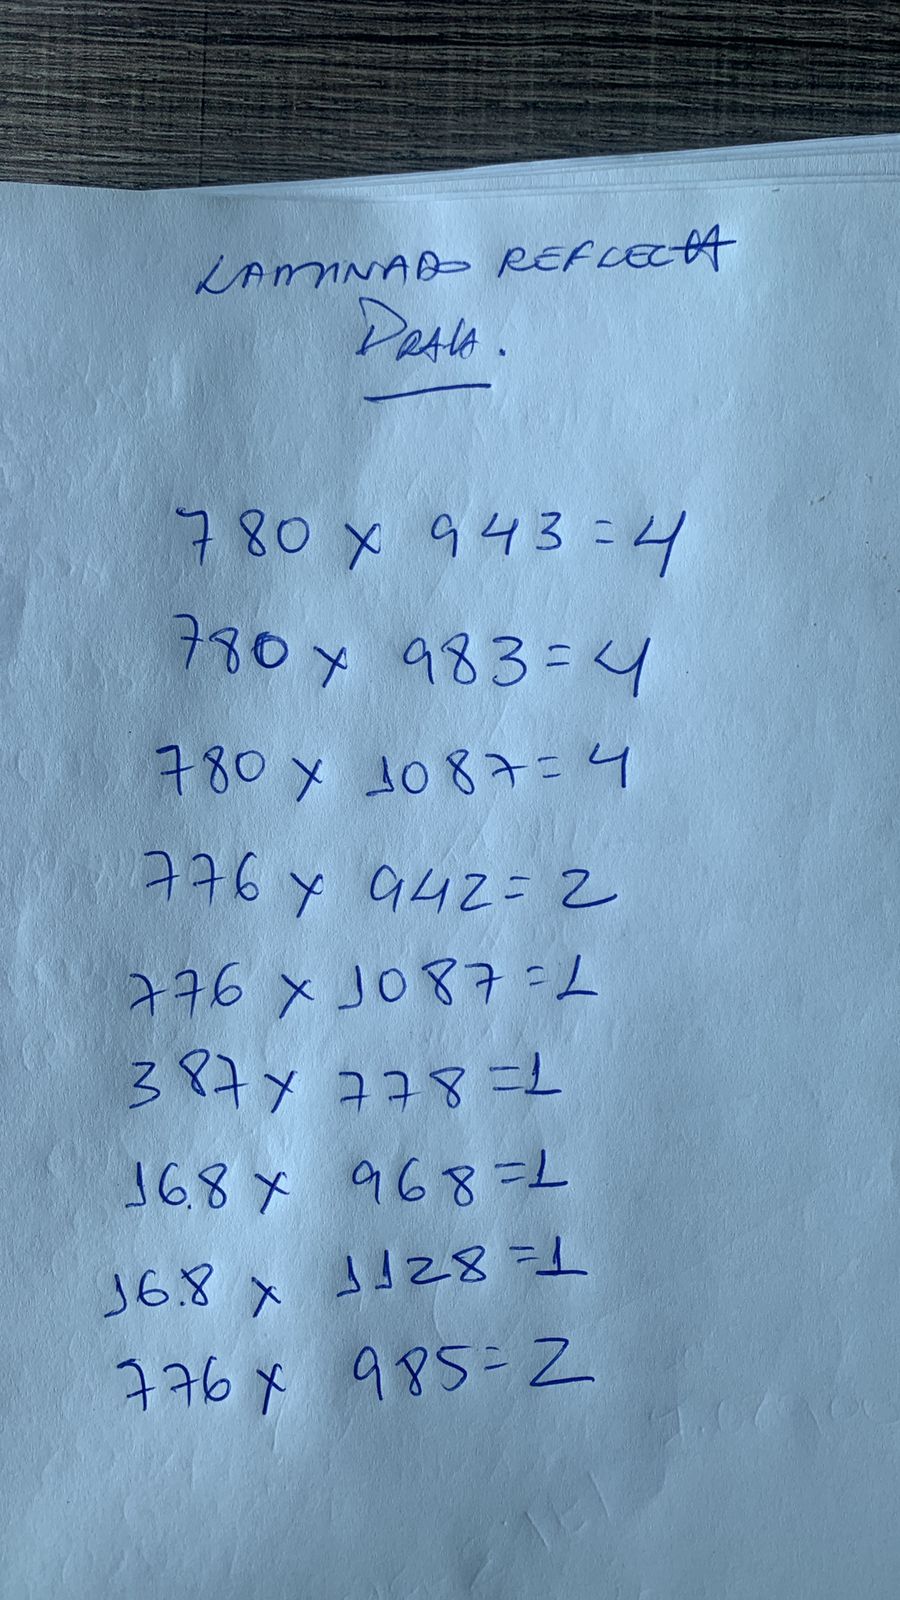 LAMINADO REFLECTA
PRATA.
780 x 943 = 4
780 x 983 = 4
780 x 1087 = 4
776 x 942 = 2
776 x 1087 = 1
387 x 778 = 1
168 x 968 = 1
168 x 1128 = 1
776 x 985 = 2